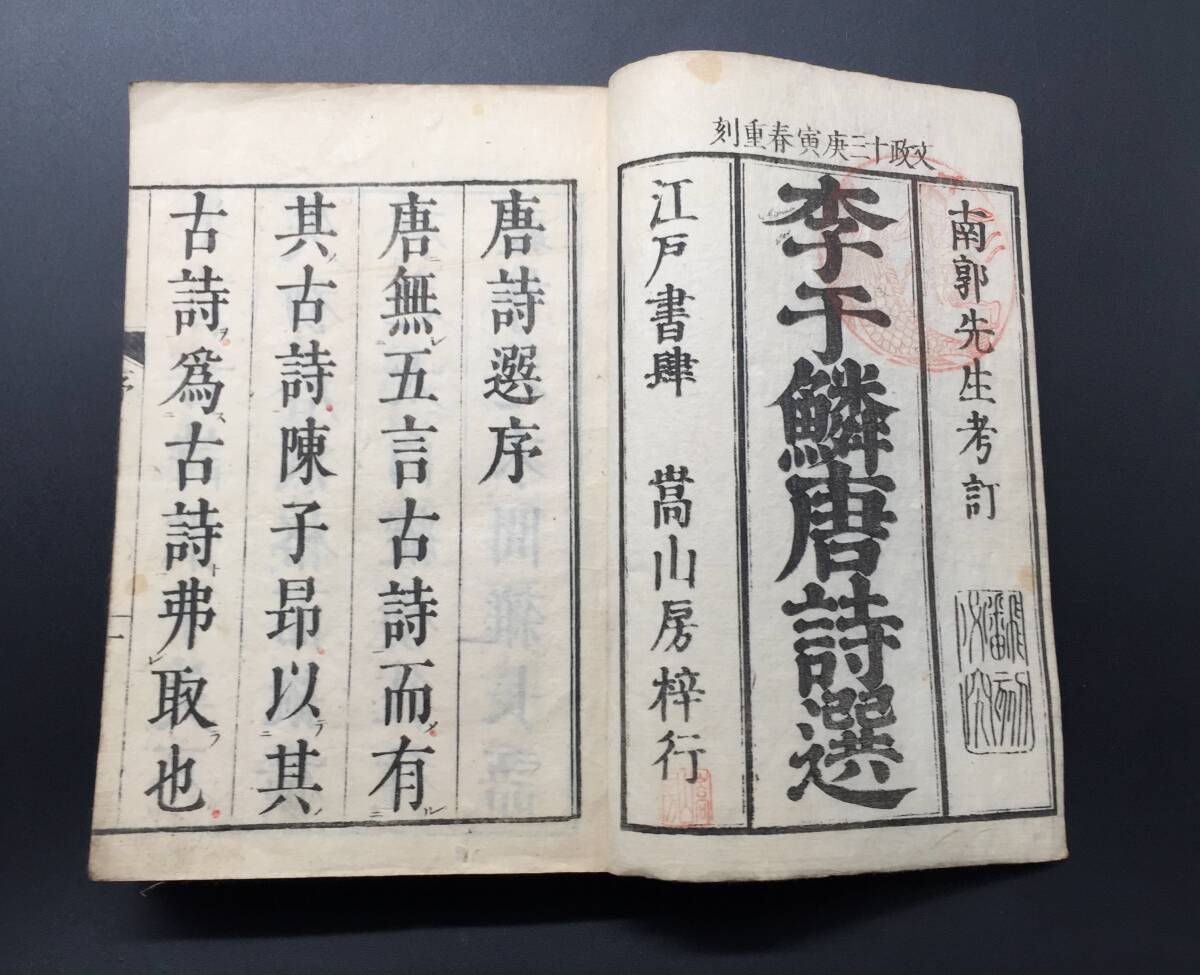 文政十三庚寅春重刻
南郭先生考訂
李于鱗唐詩選
江戸書肆 嵩山房梓行
唐詩選序
唐無五言古詩而有
其古詩陳子昻以其
古詩爲古詩弗取也
序
一